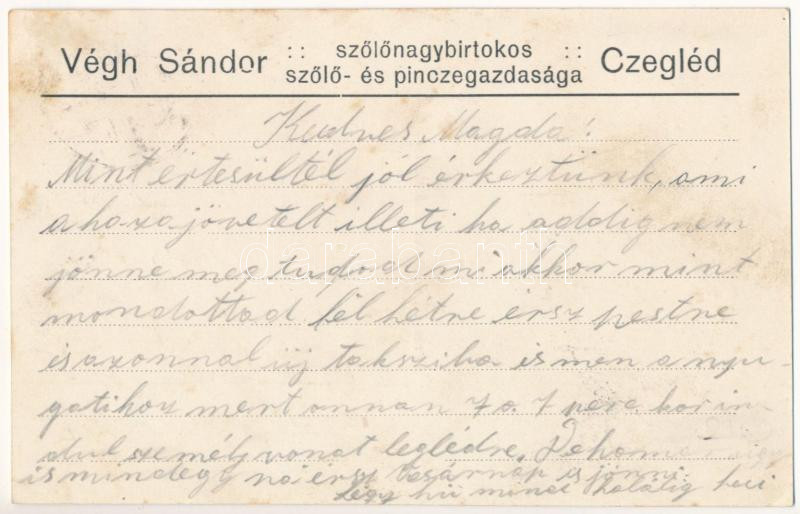 Végh Sándor :: szőlőnagybirtokos :: Czegléd
szőlő- és pinczegazdasága
Kedves Magda!
Mint értesültél jól érkeztünk, ami
a hazajövetelt illeti ha addig nem
jönne meg tudod mi akkor mint
mondottad fél hétre érsz pestre
és azonnal üj taksziba is men a nyu-
gatihoz mert onnan 7 ó. 7 perc. kor in-
dul személyvonat Ceglédre. De ha
is mindegy ráérsz vasárnap is jönni.
légy hű mind halálig
darabanth.com